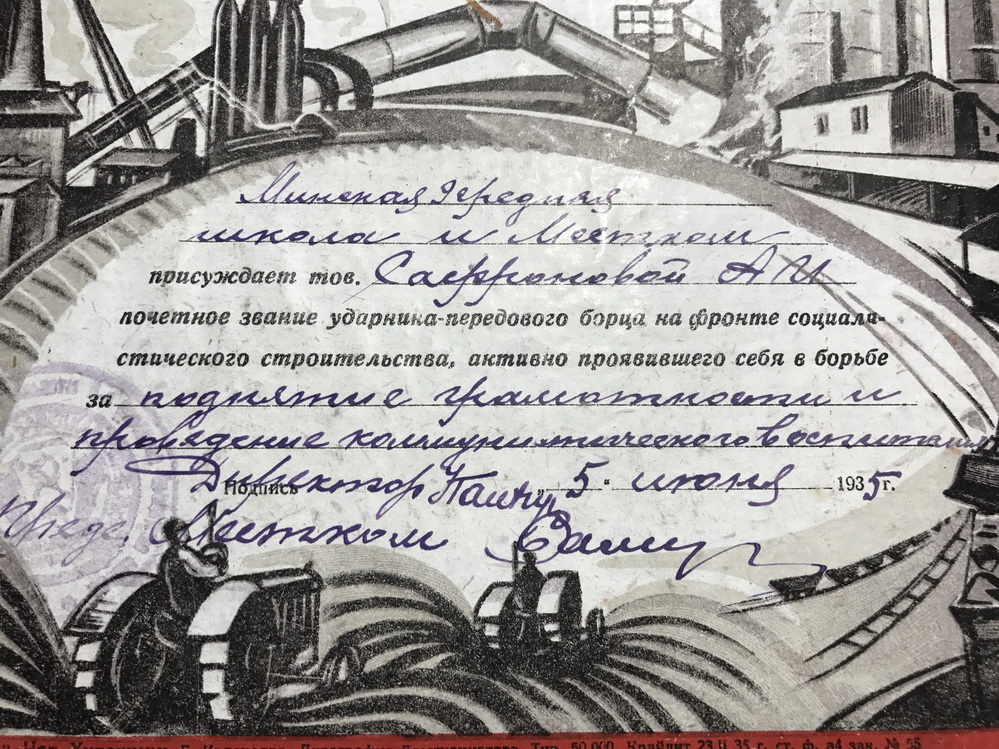 Минская Средняя
школа и Местком
присуждает тов. Сафроновой А И
почетное звание ударника-передового борца на фронте социали-
стического строительства, активно проявившего себя в борьбе
за поднятие грамотности и
проведение коммунистического воспитания
Подпись Директор „5“ июня 1935г.
Предс. Местком
Тир. 50.000. Крайлит 23.II 35 г. ст. ф. а4 зак. № 55